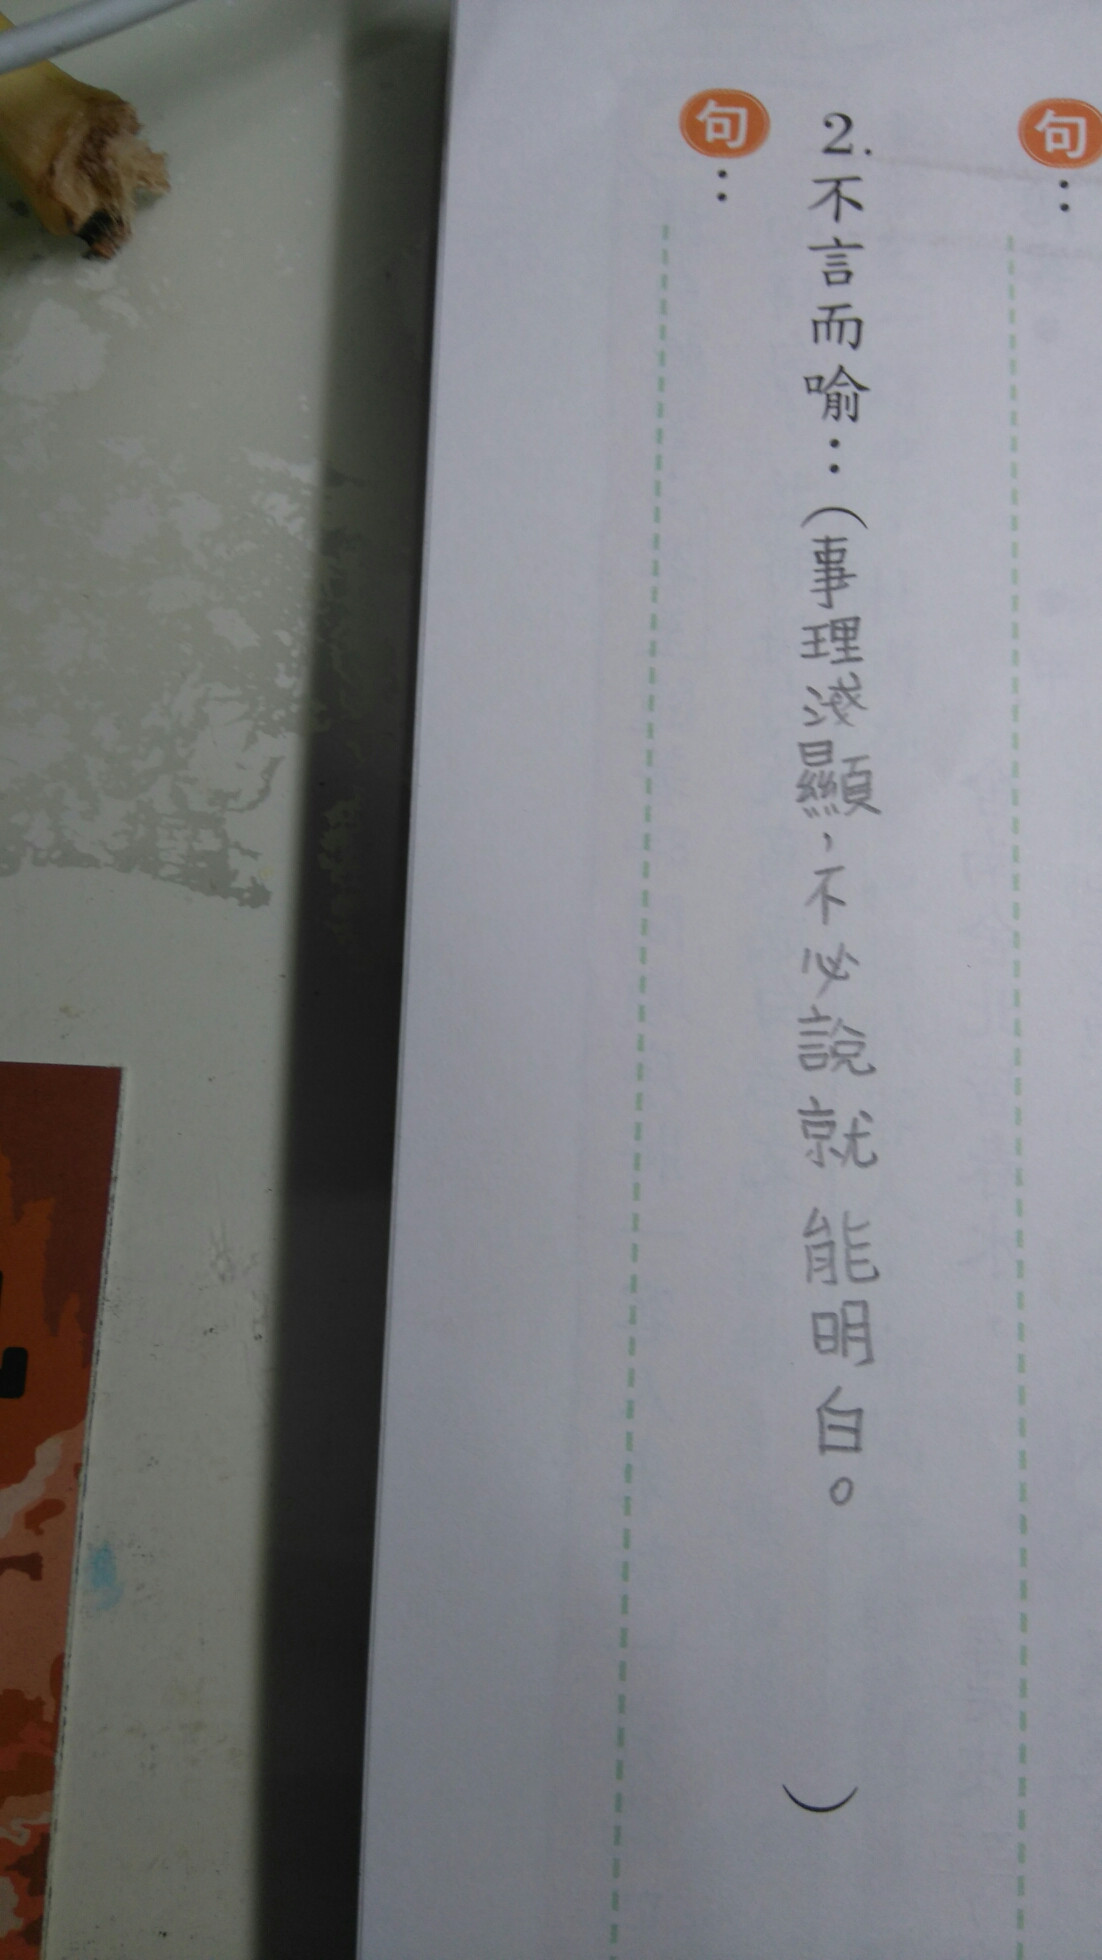 句：
2.不言而喻：（事理淺顯，不必說就能明白。）
句：